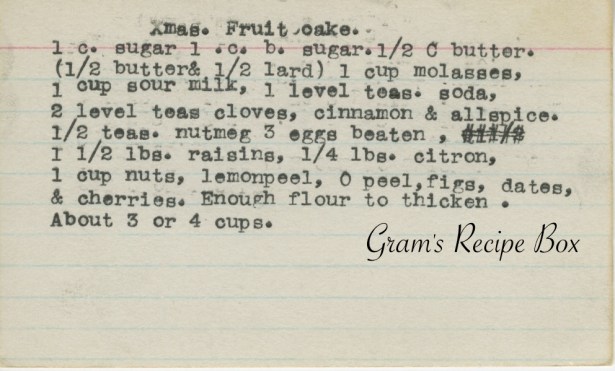 Xmas. Fruit cake.
1 c. sugar 1 .c. b. sugar.1/2 C butter.
(1/2 butter& 1/2 lard) 1 cup molasses,
1 cup sour milk, 1 level teas. soda,
2 level teas cloves, cinnamon & allspice.
1/2 teas. nutmeg 3 eggs beaten ,
I 1/2 lbs. raisins, 1/4 lbs. citron,
1 cup nuts, lemonpeel, O peel,figs, dates,
& cherries. Enough flour to thicken .
About 3 or 4 cups.
Gram's Recipe Box